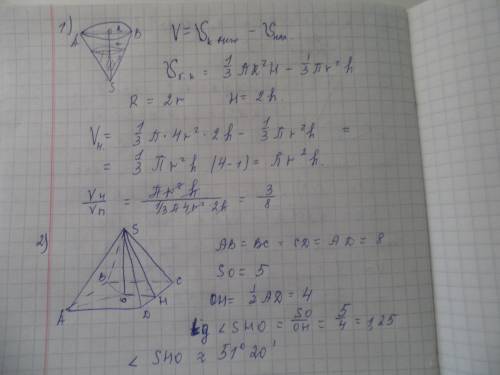 1) A R B
S
V = V к бол − V
V = 1/3 ПR²H − 1/3 Пr²h
R = 2r H = 2h
Vн = 1/3 П · 4r² · 2h − 1/3 Пr²h =
= 1/3 Пr²h (4−1) = Пr²h.
Vн/Vп = Пr²h / 1/3 П4r² 2h = 3/8
2) S
B C
O H
A D
AB = BC = CD = AD = 8
SO = 5
OH = 1/2 AD = 4
tg ∠SHO = SO/OH = 5/4 = 1,25
∠ SHO ≈ 51° 20'